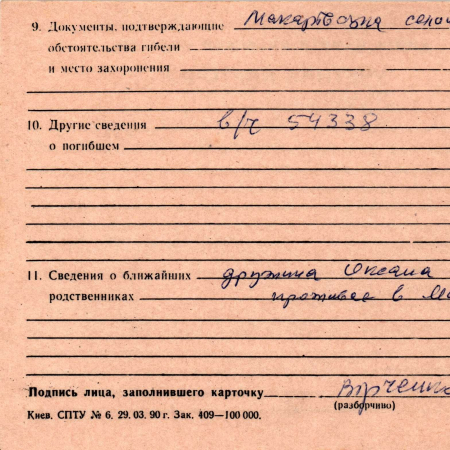 9. Документы, подтверждающие Макартвоина
обстоятельства гибели
и место захоронения
10. Другие сведения в/ч 54338
о погибшем
11. Сведения о ближайших дружина Оксана
родственниках проживає в
Подпись лица, заполнившего карточку
(разборчиво)
Киев. СПТУ № 6. 29. 03. 90 г. Зак. 409—100 000.